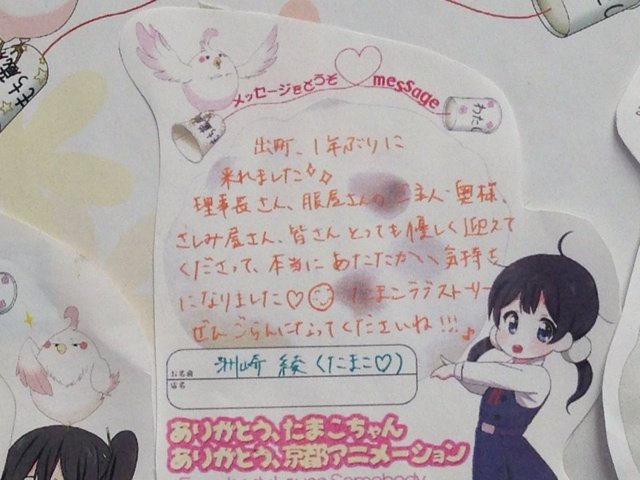 メッセージをどうぞ
message
わたし
出町、1年ぶりに
来れました
理事長さん、服屋さんのご主人・奥様、
さしみ屋さん、皆さんとっても優しく迎えて
くださって、本当にあたたかい気持ち
になりました♡ たまこラブストーリー
ぜひごらんになってくださいね!!!♪
お名前 洲崎 綾(たまこ♡)
店名
ありがとう、たまこちゃん
ありがとう、京都アニメーション
Everybody Loves Somebody